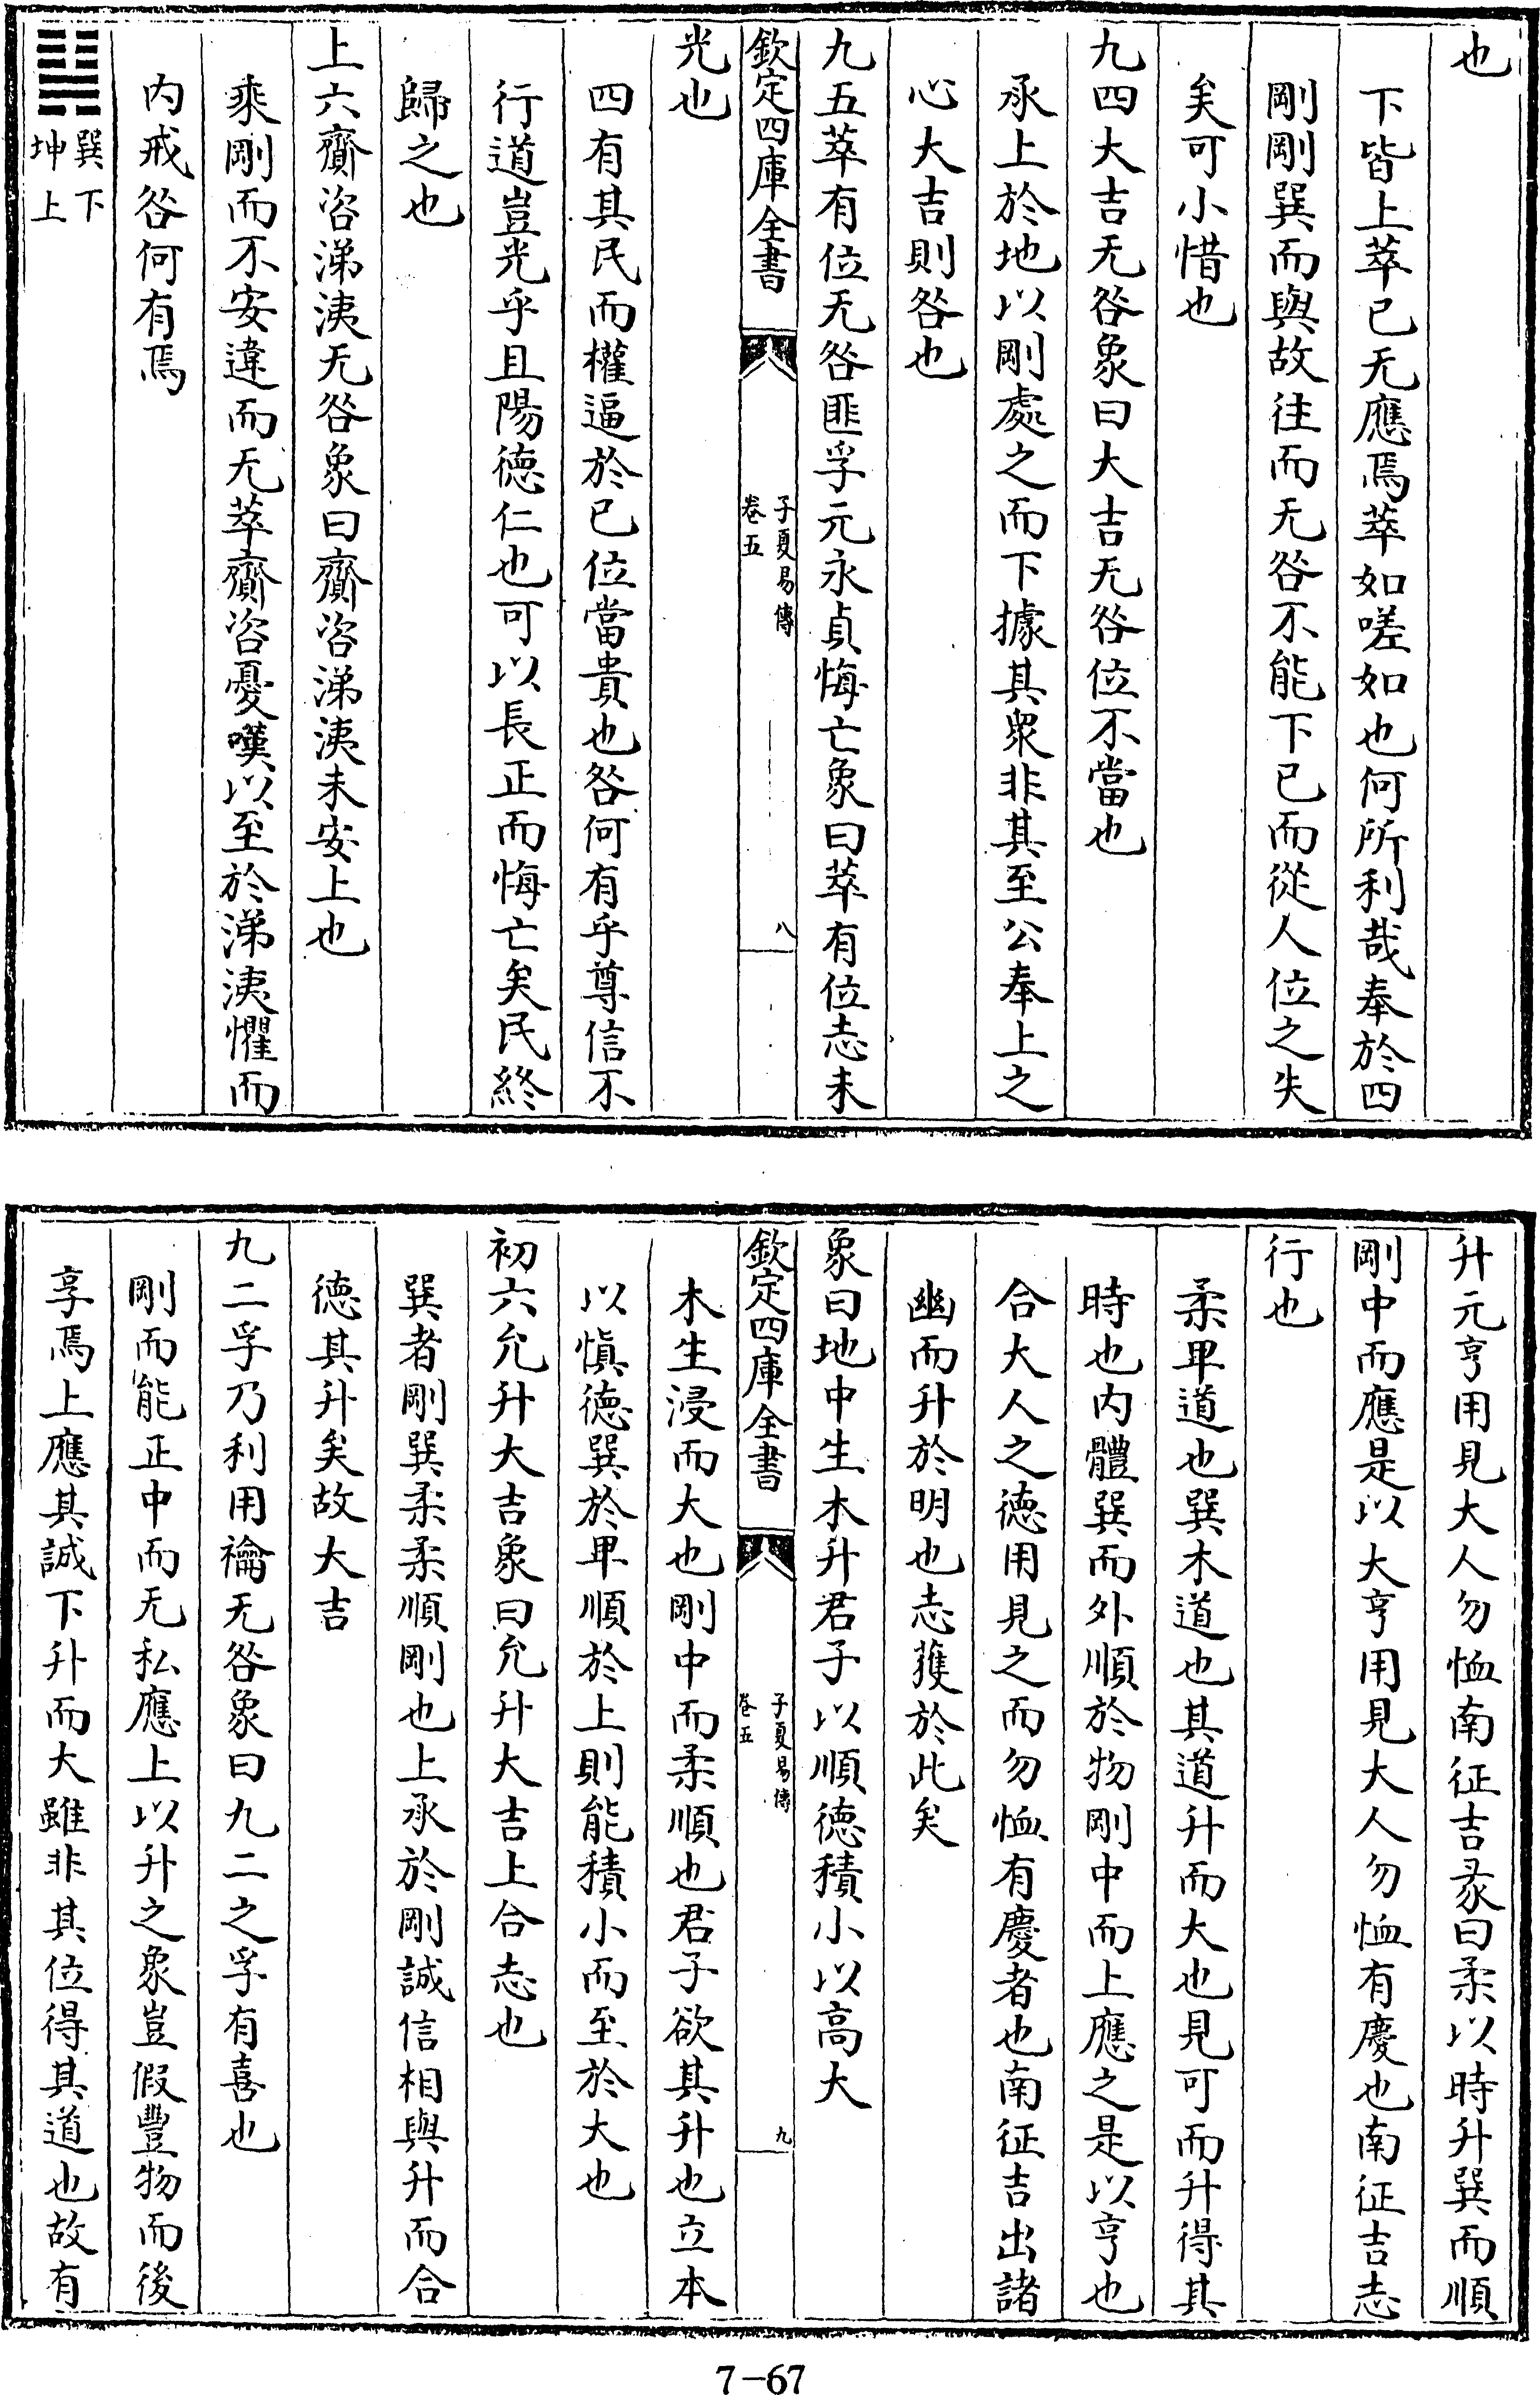 也
下皆上萃已无應焉萃如嗟如也何所利哉奉於四
剛剛巽而與故往而无咎不能下已而從人位之失
矣可小惜也
九四大吉无咎象曰大吉无咎位不當也
承上於地以剛處之而下據其衆非其至公奉上之
心大吉則咎也
九五萃有位无咎匪孚元永貞悔亡象曰萃有位志未
欽定四庫全書
子夏易傳
卷五
八
光也
四有其民而權逼於已位當貴也咎何有乎尊信不
行道豈光乎且陽德仁也可以長正而悔亡矣民終
歸之也
上六齎咨涕洟无咎象曰齎咨涕洟未安上也
乘剛而不安違而无萃齎咨憂嘆以至於涕洟懼而
内戒咎何有焉
巽下
坤上
升元亨用見大人勿恤南征吉彖曰柔以時升巽而順
剛中而應是以大亨用見大人勿恤有慶也南征吉志
行也
柔卑道也巽木道也其道升而大也見可而升得其
時也内體巽而外順於物剛中而上應之是以亨也
合大人之德用見之而勿恤有慶者也南征吉出諸
幽而升於明也志獲於此矣
象曰地中生木升君子以順德積小以高大
欽定四庫全書
子夏易傳
卷五
九
木生浸而大也剛中而柔順也君子欲其升也立本
以慎德巽於卑順於上則能積小而至於大也
初六允升大吉象曰允升大吉上合志也
巽者剛巽柔柔順剛也上承於剛誠信相與升而合
德其升矣故大吉
九二孚乃利用禴无咎象曰九二之孚有喜也
剛而能正中而无私應上以升之象豈假豐物而後
享焉上應其誠下升而大雖非其位得其道也故有
7-67